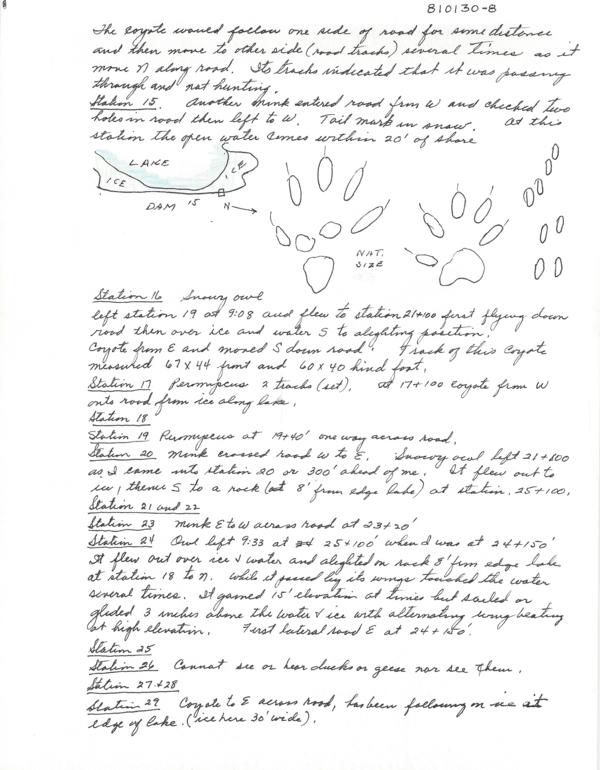 810130-8
The coyote would follow one side of road for some distance
and then move to other side (road tracks) several times as it
move N along road. Its tracks indicated that it was passing
through and not hunting.
Station 15. Another mink entered road from W and checked two
holes in road then left to W. Tail mark in snow. At this
station the open water comes within 20' of shore
LAKE
ICE
ICE
DAM 15 N →
NAT.
SIZE
Station 16 Snowy owl
left station 19 at 9:08 and flew to station 21+100 first flying down
road then over ice and water S to alighting position.
Coyote from E and moved S down road. Track of this Coyote
measured 67 x 44 front and 60 x 40 hind foot.
Station 17 Peromyscus 2 tracks (set). At 17+100 Coyote from W
onto road from ice along lake.
Station 18
Station 19 Peromyscus at 19+40' one way across road.
Station 20 Mink crossed road W to E. Snowy owl left 21+100
as I came into station 20 or 300' ahead of me. It flew out to
ice, thence S to a rock (at 8' from edge lake) at station 25+100.
Station 21 and 22
Station 23 Mink E to W across road at 23+20'
Station 24 Owl left 9:33 at 25+100' when I was at 24+150'
It flew out over ice & water and alighted on rock 8' from edge lake
at station 18 to N. While it passed by its wings touched the water
several times. It gained 15' elevation at times but sailed or
glided 3 inches above the water & ice with alternating wing beating
at high elevation. First lateral road E at 24+150'.
Station 25
Station 26 Cannot see or hear ducks or geese nor see them.
Station 27+28
Station 29 Coyote to E across road, has been following on ice at
edge of lake. (ice here 30' wide).